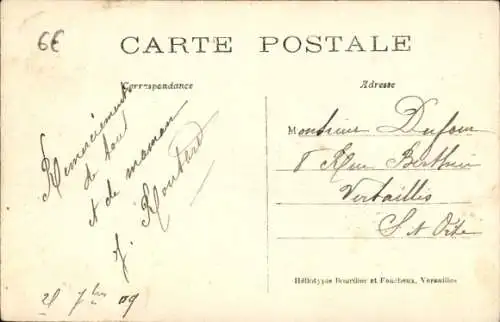 6€
CARTE POSTALE
Correspondance
Adresse
Remerciements
de tous
et de maman
J. Roubert
21 7bre 09
Monsieur Dufour
8 Rue Berthier
Versailles
S et Oise
Héliotypie Bourdier et Faucheux, Versailles